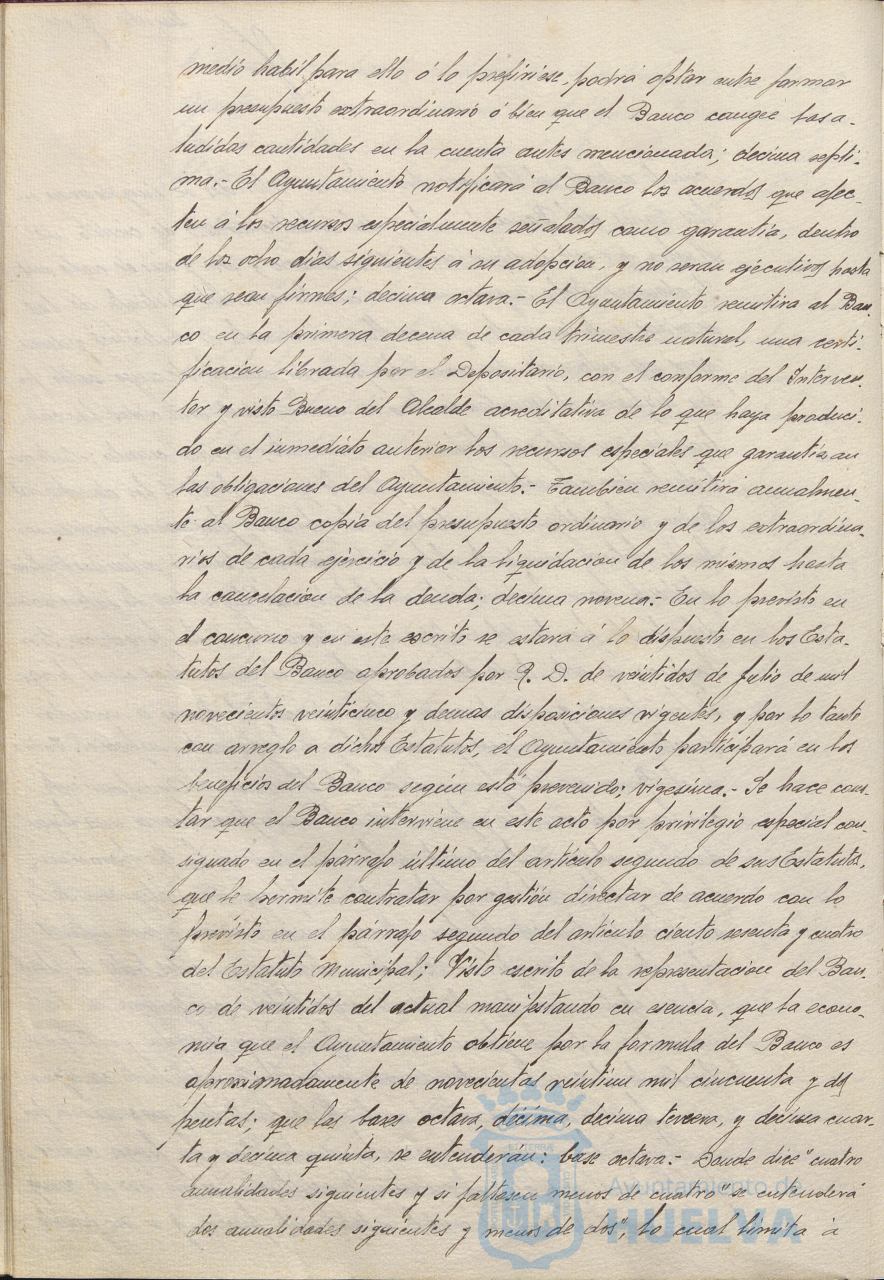 medio habil para ello ó lo prefiriese, podrá optar entre formar
un presupuesto extraordinario ó bien que el Banco cargue las a-
ludidas cantidades en la cuenta antes mencionada; decima septi-
ma.- El Ayuntamiento notificará al Banco los acuerdos que afec-
ten á los recursos especialmente señalados como garantia, dentro
de los ocho dias siguientes á su adopcion, y no seran ejecutivos hasta
que sean firmes; decima octava.- El Ayuntamiento remitira al Ban-
co en la primera decena de cada trimestre natural, una certi-
ficacion librada por el Depositario, con el conforme del Interven-
tor y visto Bueno del Alcalde acreditativa de lo que haya produci-
do en el inmediáto anterior los recursos especiales que garantizan
las obligaciones del Ayuntamiento.- Tambien remitirá anualmen-
te al Banco copia del presupuesto ordinario y de los extraordina-
rios de cada ejercicio y de la liquidacion de los mismos hasta
la cancelacion de la deuda; decima novena.- En lo previsto en
el concurso y en este escrito se estará á lo dispuesto en los Esta-
tutos del Banco aprobados por R. D. de veintidos de Julio de mil
novecientos veinticinco y demas disposiciones vigentes, y por lo tanto
con arreglo a dichos Estatutos, el Ayuntamiento participará en los
beneficios del Banco según está prevenido; vigesima.- Se hace cons-
tar que el Banco interviene en este acto por privilegio especial con-
signado en el párrafo último del articulo segundo de sus Estatutos,
que le permite contratar por gestión directar de acuerdo con lo
previsto en el párrafo segundo del articulo ciento sesenta y cuatro
del Estatuto Municipal; Visto escrito de la representacion del Ban-
co de veintidos del actual manifestando en esencia, que la econo-
mia que el Ayuntamiento obtiene por la formula del Banco es
aproximadamente de novecientas veintiun mil cincuenta y dos
pesetas; que las bases octava, décima, decima tercera, y decima cuar-
ta y decima quinta, se entenderán: base octava.- Donde dice "cuatro
anualidades siguientes y si faltasen menos de cuatro" se entenderá
"dos anualidades siguientes y menos de dos", lo cual limita á
Ayuntamiento de
HUELVA